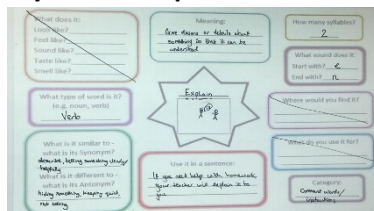 What does it:
Look like?
Feel like?
Sound like?
Taste like?
Smell like?
Meaning:
Give reasons or details about
something so that it can be
understood
How many syllables?
2
What sound does it:
Start with? e
End with? n
What type of word is it?
(e.g. noun, verb)
Verb
Explain
Where would you find it?
What is it similar to -
what is its Synonym?
describe, telling something clearly/
helpfully
What is it different to -
what is its Antonym?
hiding something, keeping quiet,
not telling
Use it in a sentence:
If you need help with homework,
your teacher will explain it to
you
What do you use it for?
Category:
Command words/
instructions